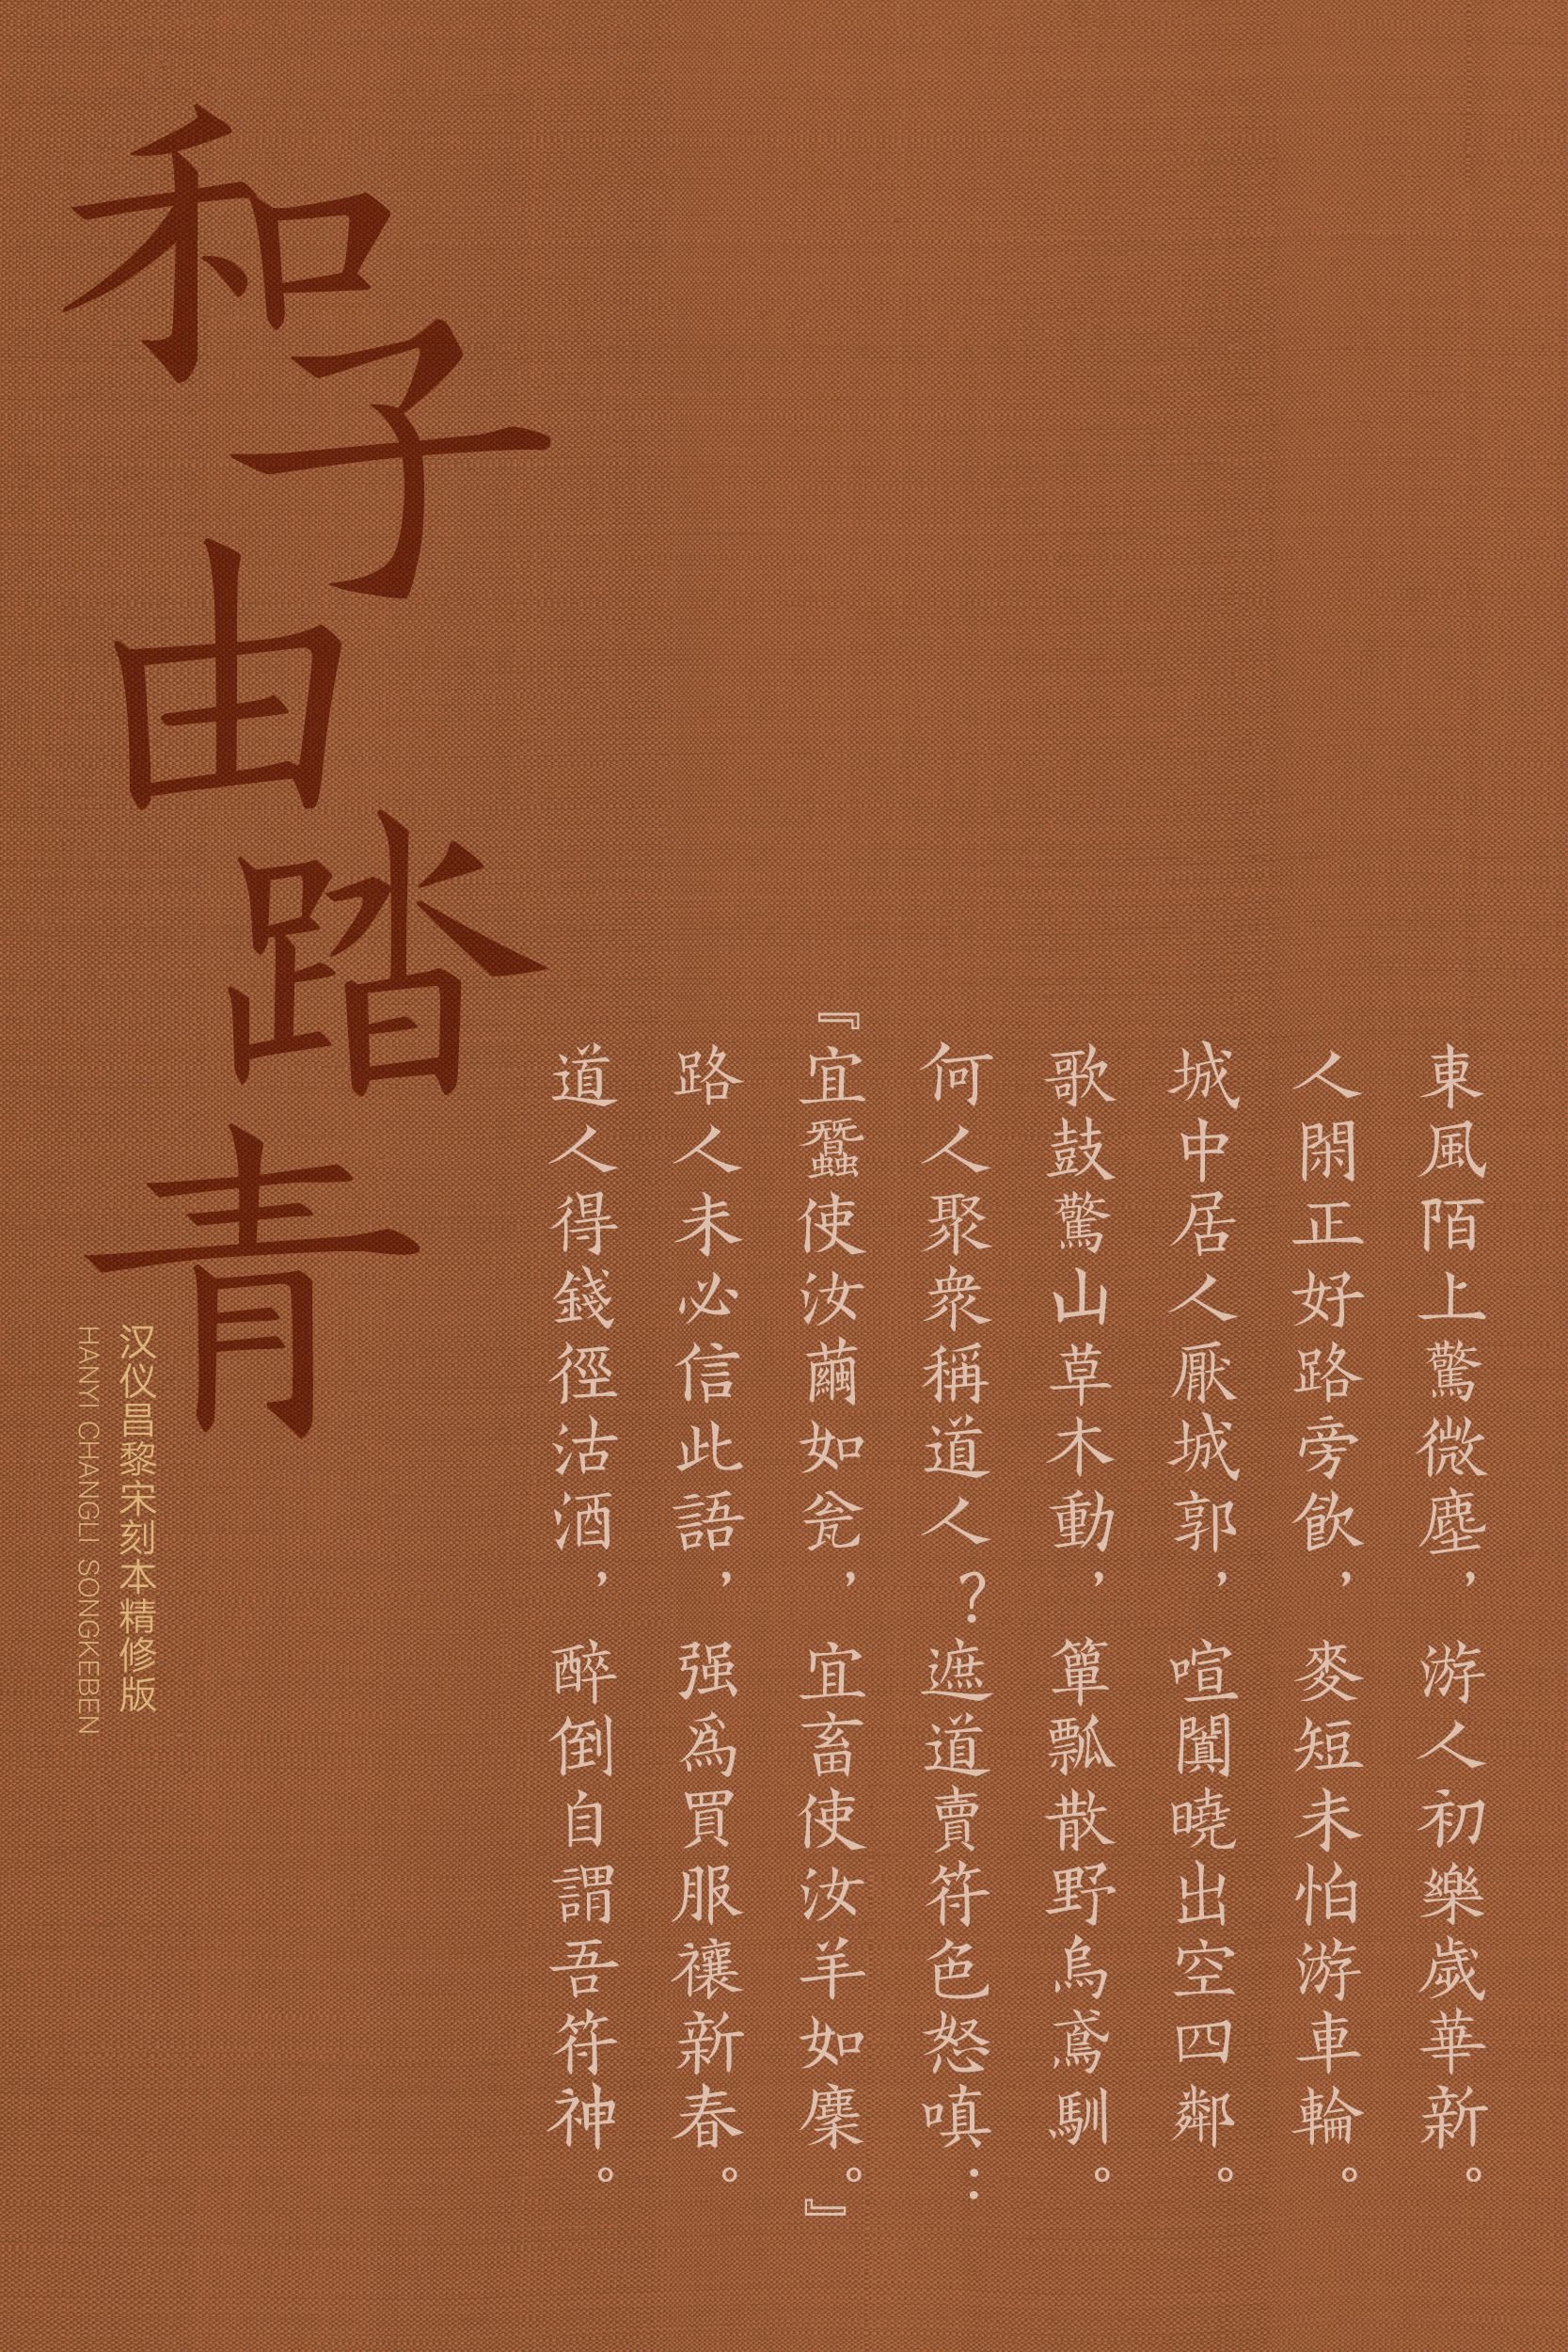 東風陌上驚微塵，游人初樂歲華新。
人閑正好路旁飲，麥短未怕游車輪。
城中居人厭城郭，喧闐曉出空四鄰。
歌鼓驚山草木動，簞瓢散野烏鳶馴。
何人聚衆稱道人？遮道賣符色怒嗔：
『宜蠶使汝繭如瓮，宜畜使汝羊如麇。』
路人未必信此語，强爲買服禳新春。
道人得錢徑沽酒，醉倒自謂吾符神。
和子由踏青
汉仪昌黎宋刻本精修版
HANYI CHANGLI SONGKEBEN